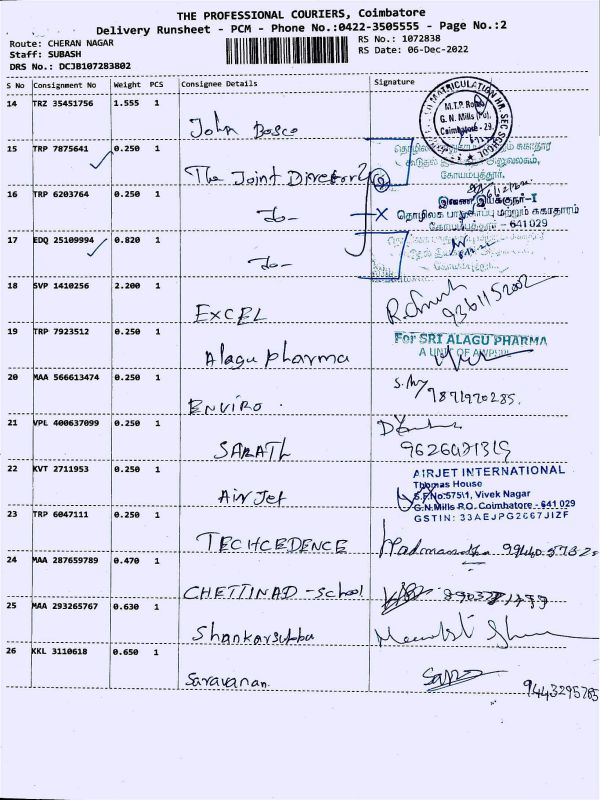 THE PROFESSIONAL COURIERS, Coimbatore
Delivery Runsheet - PCM - Phone No.:0422-3505555 - Page No.:2
Route: CHERAN NAGAR
RS No.: 1072838
Staff: SUBASH
RS Date: 06-Dec-2022
DRS No.: DCJB107283802
S No Consignment No Weight PCS Consignee Details Signature
14 TRZ 35451756 1.555 1
John Bosco
MATRICULATION HR. SEC SCHOOL
M.T.P. Road
G. N. Mills (Po),
Coimbatore - 29.
15 TRP 7875641 0.250 1
The Joint Director
கோயம்புத்தூர்.
16 TRP 6203764 0.250 1
Do-
இணை இயக்குநர்-I
தொழிலக பாதுகாப்பு மற்றும் சுகாதாரம்
கோயம்புத்தூர் - 641029
17 EDQ 25109994 0.820 1
Do-
18 SVP 1410256 2.200 1
EXCEL
9361152002
19 TRP 7923512 0.250 1
Alagu pharma
For SRI ALAGU PHARMA
A UNIT OF
20 MAA 566613474 0.250 1
ENVIRO.
9871970285.
21 VPL 400637099 0.250 1
SARATH
9626021319
22 KVT 2711953 0.250 1
Air Jet
AIRJET INTERNATIONAL
Thomas House
S.F.No:575\1, Vivek Nagar
G.N.Mills P.O. Coimbatore - 641 029
GSTIN: 33AEJPG2667J1ZF
23 TRP 6047111 0.250 1
TECHCEDENCE
24 MAA 287659789 0.470 1
CHETTINAD - School
25 MAA 293265767 0.630 1
Shankarsubbu
26 KKL 3110618 0.650 1
Saravanan.
9443295785